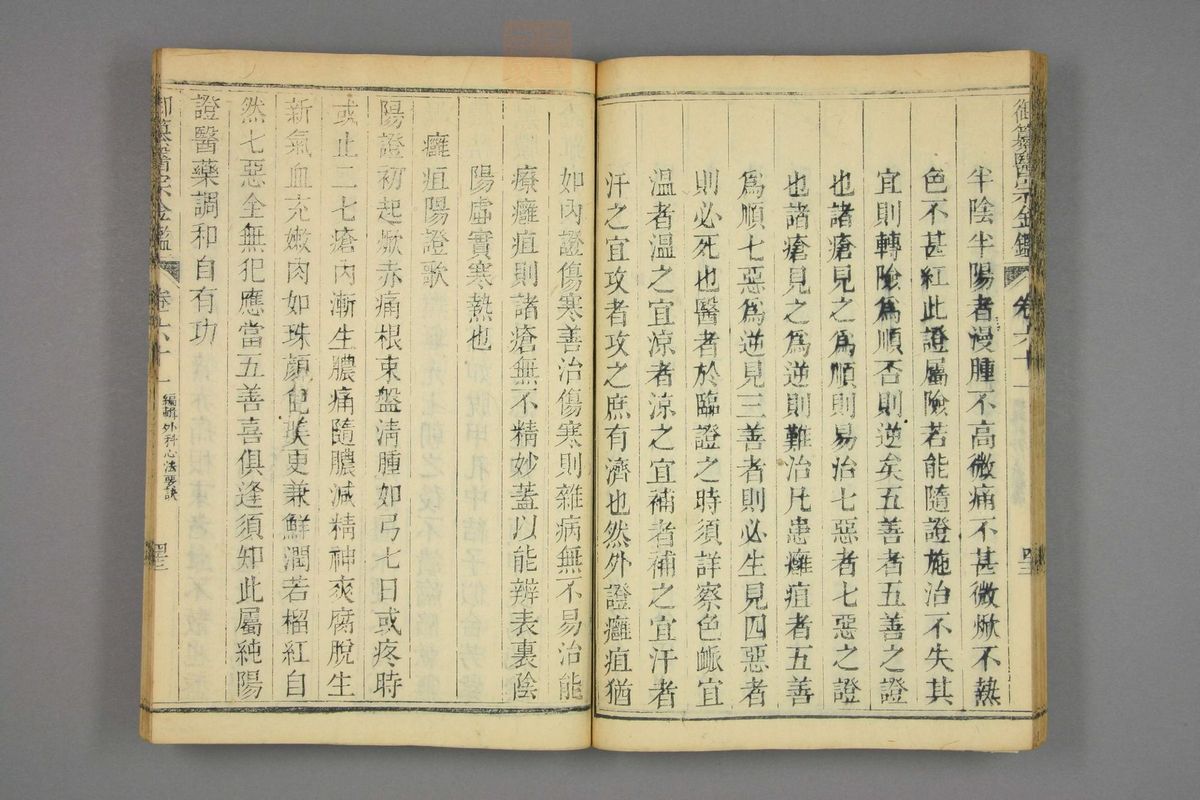 御纂醫宗金鑑 卷六十一
半陰半陽者漫腫不高微痛不甚微焮不熱
色不甚紅此證屬險若能隨證施治不失其
宜則轉險爲順否則逆矣五善者五善之證
也諸瘡見之爲順則易治七惡者七惡之證
也諸瘡見之爲逆則難治凡患癰疽者五善
爲順七惡爲逆見三善者則必生見四惡者
則必死也醫者於臨證之時須詳察色衇宜
溫者溫之宜涼者涼之宜補者補之宜汗者
汗之宜攻者攻之庶有濟也然外證癰疽猶
如內證傷寒善治傷寒則雜病無不易治能
療癰疽則諸瘡無不精妙蓋以能辨表裏陰
陽虛實寒熱也
癰疽陽證歌
陽證初起焮赤痛根束盤清腫如弓七日或疼時
或止二七瘡內漸生膿痛隨膿減精神爽腐脫生
新氣血充嫩肉如珠顏色美更兼鮮潤若榴紅自
然七惡全無犯應當五善喜俱逢須知此屬純陽
證醫藥調和自有功
御纂醫宗金鑑 卷六十一 編輯外科心法要訣